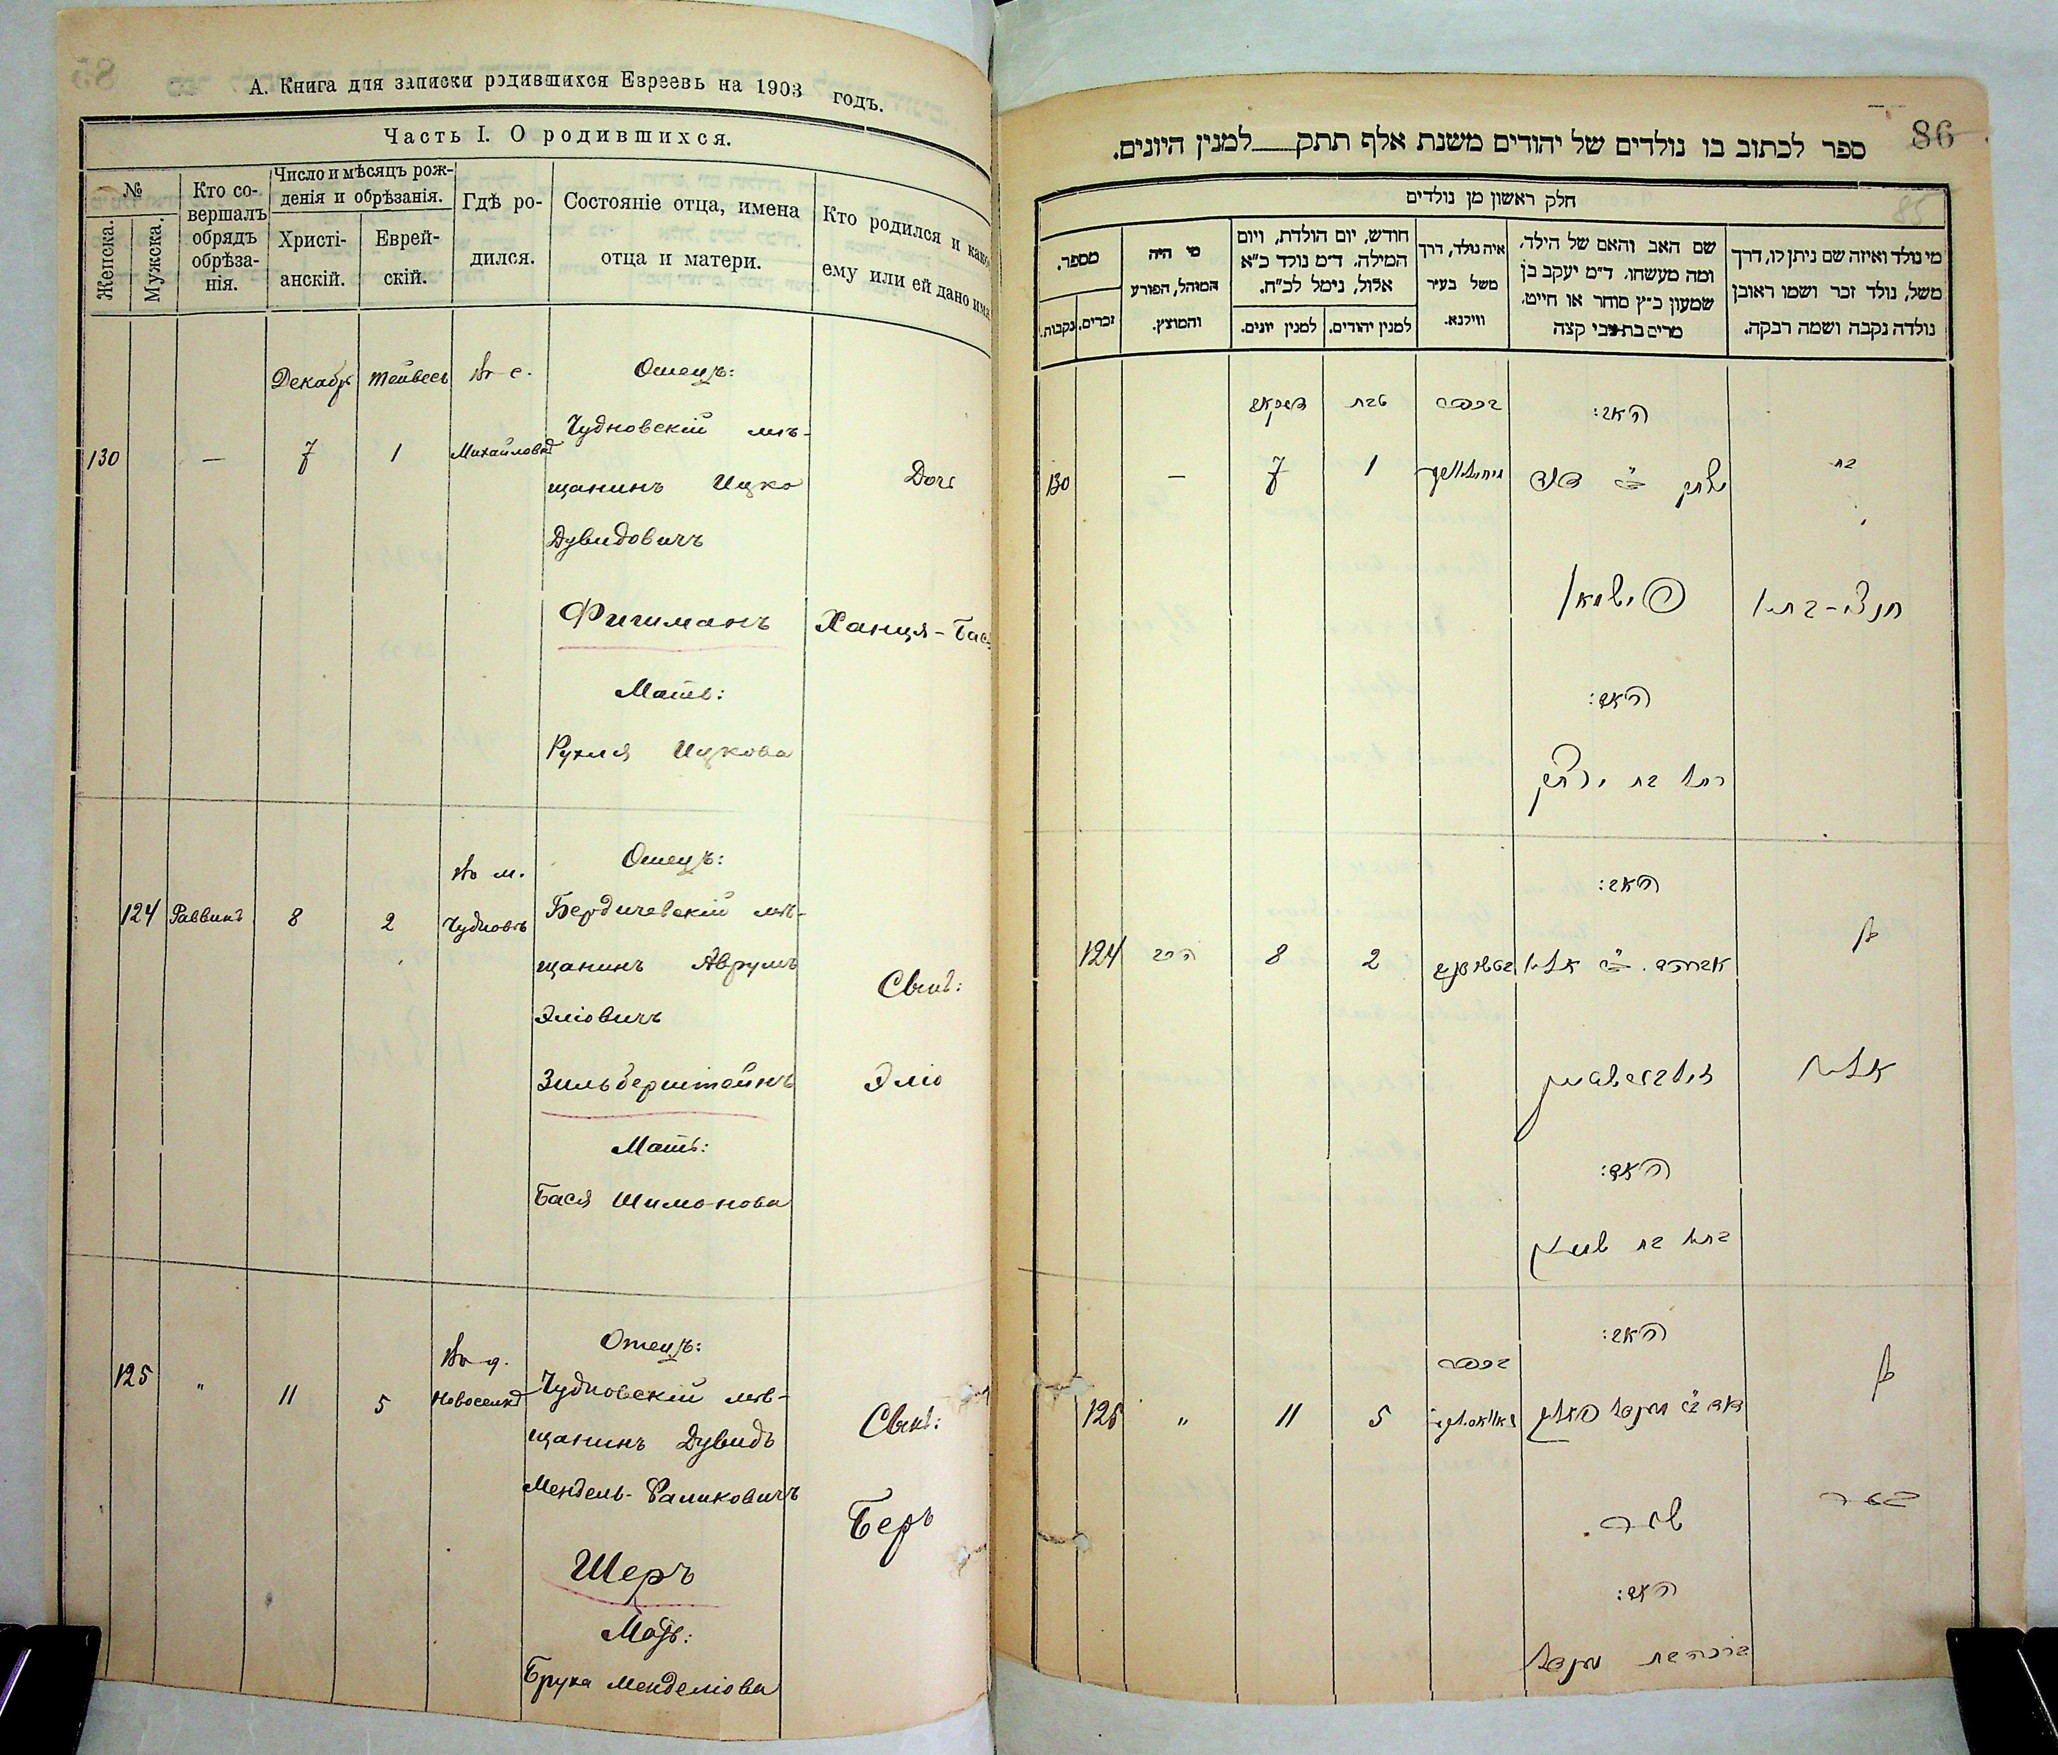 А. Книга для записки родившихся Евреевъ на 1903 годъ.
Часть I. О родившихся.
№
Женска.
Мужска.
Кто со-
вершалъ
обрядъ
обрѣза-
нія.
Число и мѣсяцъ рож-
денія и обрѣзанія.
Христі-
анскій.
Еврей-
скій.
Гдѣ ро-
дился.
Состояніе отца, имена
отца и матери.
Кто родился и какое
ему или ей дано имя.
Декабр Тейвесъ Въ с. Отецъ:
130 — 7 1 Михайловкѣ
Чудновскій мѣ-
щанинъ Ицко
Дувидовичъ
Дочь
Фишманъ Ханця-Бася
Мать:
Рухля Ицкова
Въ м. Отецъ:
124 Раввинъ 8 2 Чудновѣ Бердичевскій мѣ-
щанинъ Аврумъ
Эліовичъ
Сынъ:
Зильберштейнъ Эліо
Мать:
Бася Шимонова
Въ д. Отецъ:
125 " 11 5 Новоселкѣ Чудновскій мѣ-
щанинъ Дувидъ
Мендель-Фаликовичъ
Сынъ:
Беръ
Шеръ
Мать:
Бруха Менделіова
86
ספר לכתוב בו נולדים של יהודים משנת אלף תתק למנין היונים.
חלק ראשון מן נולדים
מי נולד ואיזה שם ניתן לו, דרך
משל, נולד זכר ושמו ראובן
נולדה נקבה ושמה רבקה.
שם האב והאם של הילד,
ומה מעשהו. ד״מ יעקב בן
שמעון כ״ץ סוחר או חייט.
מרים בת צבי קצה
איה נולד, דרך
משל בעיר
ווילנא.
חודש, יום הולדת, ויום
המילה. ד״מ נולד כ״א
אלול, נימל לכ״ח.
למנין יהודים.
למנין יונים.
מי היה
המוהל, הפורע
והמוצץ.
מספר.
זכרים.
נקבות.
האב:
בכפר טבת דעקאב
בת יצחק ב״ר דוד 1 7 — 130
חנצי-בתיא פישמאן
האם:
רחל בת יצחק
האב:
בן אברהם ב״ר אליה 2 8 הרב 124
אליה זילבערשטיין
האם:
בתיא בת שמעון
האב:
בכפר
בן 5 11 " 125
שער
האם:
ברכה בת מענדל